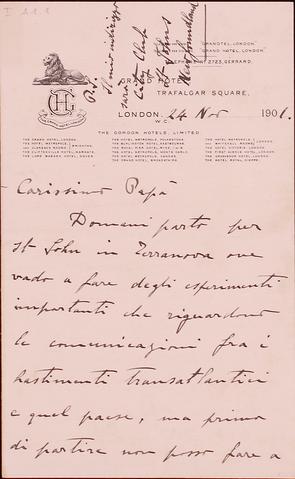 I 1.1.1
P.S.
Il mio indirizzo
sarà
City Club
St Johns
Newfoundland
GRANOTEL, LONDON.
GRAND HOTEL, LONDON.
TELEPHONE Nº 2723, GERRARD.
GH
GRAND HOTEL
TRAFALGAR SQUARE,
LONDON, 24 Nov 1901.
W.C.
THE GORDON HOTELS, LIMITED
THE GRAND HOTEL, LONDON.
THE HOTEL METROPOLE, BRIGHTON.
THE CLIFTONVILLE HOTEL, MARGATE.
THE LORD WARDEN HOTEL, DOVER.
THE HOTEL METROPOLE, FOLKESTONE
THE BURLINGTON HOTEL, EASTBOURNE
THE ROYAL PIER HOTEL, RYDE, I.W.
THE HOTEL METROPOLE, MONTE CARLO
THE HOTEL METROPOLE, CANNES
THE GRAND HOTEL, BROADSTAIRS
THE HOTEL METROPOLE, LONDON.
WHITEHALL ROOMS LONDON.
THE HOTEL VICTORIA LONDON.
THE FIRST AVENUE HOTEL, LONDON.
THE GROSVENOR HOTEL, LONDON
THE HOTEL ROYAL, DIEPPE
Carissimo Papà
Domani parto per
St John in Terranova ove
vado a fare degli esperimenti
importanti che riguardono
le comunicazioni fra i
bastimenti transatlantici
e quel paese, ma prima
di partire non posso fare a